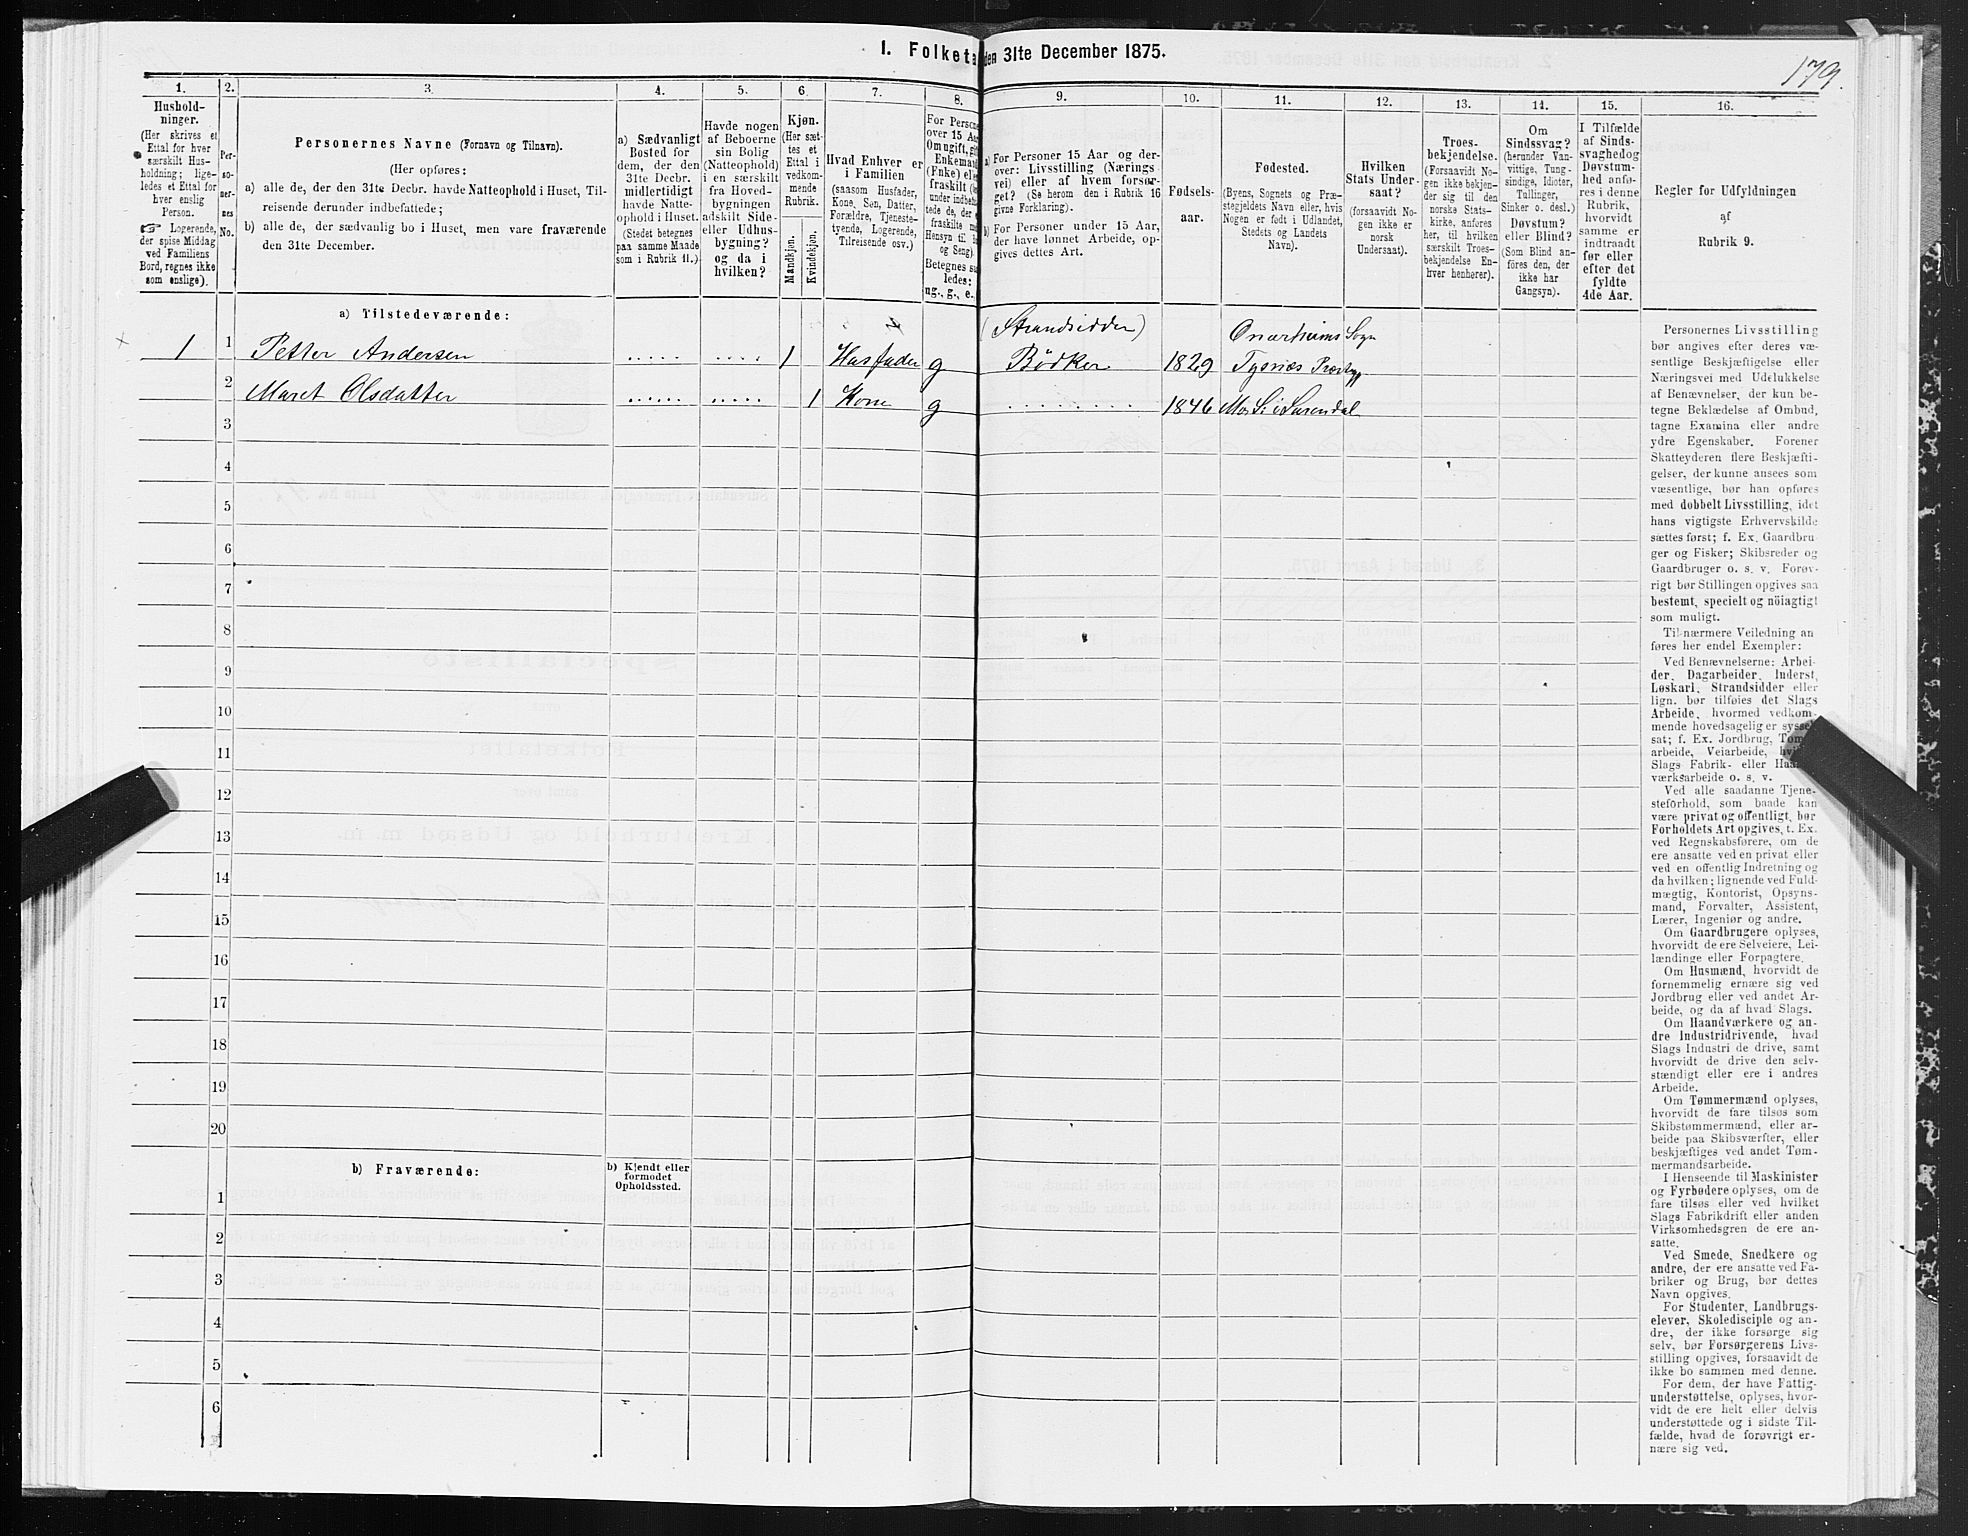 1. Folketa
den 31te December 1875.
179.
1.
2.
3.
4.
5.
6.
7.
8.
9.
10.
11.
12.
13.
14.
15.
16.
Hushold-
ninger.
(Her skrives et
Ettal for hver
særskilt Hus-
holdning; lige-
ledes et Ettal for
hver enslig
Person.
☞ Logerende,
der spise Middag
ved Familiens
Bord, regnes ikke
som enslige).
Per-
so-
ner-
nes
No.
Personernes Navne (Fornavn og Tilnavn).
(Her opføres:
a) alle de, der den 31te Decbr. havde Natteophold i Huset, Til-
reisende derunder indbefattede;
b) alle de, der sædvanlig bo i Huset, men vare fraværende
den 31te December.
a) Sædvanligt
Bosted for
dem, der den
31te Decbr.
midlertidigt
havde Natte-
ophold i Huset.
(Stedet betegnes
paa samme Maade
som i Rubrik 11.)
Havde nogen
af Beboerne
sin Bolig
(Natteophold)
i en særskilt
fra Hoved-
bygningen
adskilt Side-
eller Udhus-
bygning?
og da i
hvilken?
Kjøn.
(Her sæt-
tes et
Ettal i
vedkom-
mende
Rubrik.
Mandkjøn.
Kvindekjøn.
Hvad Enhver er
i Familien
(saasom Husfader,
Kone, Søn, Datter,
Forældre, Tjeneste-
tyende, Logerende,
Tilreisende osv.)
For Persone
over 15 Aa
Om ugift, gif
Enkemand
(Enke) elle
fraskilt (de
under indbefat
tede de, der e
fraskilte me
Hensyn til
og Seng).
Betegnes sa
ledes:
ug., g., e.,
a) For Personer 15 Aar og der-
over: Livsstilling (Nærings-
vei) eller af hvem forsør-
get? (Se herom den i Rubrik 16
givne Forklaring).
b) For Personer under 15 Aar,
der have lønnet Arbeide, op-
gives dettes Art.
Fødsels-
aar.
Fødested.
(Byens, Sognets og Præ-
stegjeldets Navn eller, hvis
Nogen er født i Udlandet,
Stedets og Landets
Navn).
Hvilken
Stats Under-
saat?
(forsaavidt No-
gen ikke er
norsk
Undersaat).
Troes-
bekjendelse.
(Forsaavidt No-
gen ikke bekjen-
der sig til den
norske Stats-
kirke, anføres
her, til hvilken
særskilt Troes-
bekjendelse En-
hver henhører).
Om
Sindssvag?
(herunder Van-
vittige, Tung-
sindige, Idioter,
Tullinger,
Sinker o. desl.)
Døvstum?
eller Blind?
(Som Blind an-
føres den, der
ikke har
Gangsyn).
I Tilfælde
af Sinds-
svaghed og
Døvstum-
hed anfø-
res i denne
Rubrik,
hvorvidt
samme er
indtraadt
før eller
efter det
fyldte
4de Aar.
Regler for Udfyldningen
af
Rubrik 9.
a) Tilstedeværende:
(Strandsidder)
Onarheims Sogn
1 1 Petter Andersen ..... .... 1 Husfader g Bødker 1829 Tysnæs Præstg
2 Maret Olsdatter ...... ..... 1 Kone g ......... 1846 Mo S. i Surendal
3
4
5
6
7
8
9
10
11
12
13
14
15
16
17
18
19
20
b) Fraværende:
b) Kjendt eller
formodet
Opholdssted.
1
2
3
4
5
6
Personernes Livsstilling
bør angives efter deres væ-
sentlige Beskjæftigelse eller
Næringsvei med Udelukkelse
af Benævnelser, der kun be-
tegne Beklædelse af Ombud,
tagne Examina eller andre
ydre Egenskaber. Forener
Skatteyderen flere Beskjæfti-
gelser, der kunne ansees som
væsentlige, bør han opføres
med dobbelt Livsstilling, idet
hans vigtigste Erhvervskilde
sættes først; f. Ex. Gaardbru-
ger og Fisker; Skibsreder og
Gaardbruger o. s. v. Forøv-
rigt bør Stillingen opgives saa
bestemt, specielt og nöiagtigt
som muligt.
Til nærmere Veiledning an
føres her endel Exempler:
Ved Benævnelserne: Arbei-
der, Dagarbeider, Inderst,
Løskarl, Strandsidder eller
lign. bør tilføies det Slags
Arbeide, hvormed vedkom-
mende hovedsagelig er syssel
sat; f. Ex. Jordbrug, Tøm
arbeide, Veiarbeide, hvi
Slags Fabrik- eller Haa
værksarbeide o. s. v.
Ved alle saadanne Tjene-
steforhold, som baade kan
være privat og offentligt, bør
Forholdets Art opgives, t. Ex.
ved Regnskabsførere, om de
ere ansatte ved en privat eller
ved en offentlig Indretning og
da hvilken; lignende ved Fuld-
mægtig, Kontorist, Opsyns-
mand, Forvalter, Assistent,
Lærer, Ingeniør og andre.
Om Gaardbrugere oplyses,
hvorvidt de ere Selveiere, Lei-
lændinge eller Forpagtere.
Om Husmænd, hvorvidt de
fornemmelig ernære sig ved
Jordbrug eller ved andet Ar-
beide, og da af hvad Slags.
Om Haandværkere og an-
dre Industridrivende, hvad
Slags Industri de drive, samt
hvorvidt de drive den selv-
stændigt eller ere i andres
Arbeide.
Om Tømmermænd oplyses,
hvorvidt de fare tilsøs som
Skibstømmermænd, eller ar-
beide paa Skibsværfter, eller
beskjæftiges ved andet Tøm-
mermandsarbeide.
I Henseende til Maskinister
og Fyrbødere oplyses, om de
fare tilsøs eller ved hvilket
Slags Fabrikdrift eller anden
Virksomhedsgren de ere an-
satte.
Ved Smede, Snedkere og
andre, der ere ansatte ved Fa-
briker og Brug, bør dettes
Navn opgives.
For Studenter, Landbrugs-
elever, Skoledisciple og an-
dre, der ikke forsørge sig
selv, bør Forsørgerens Livs-
stilling opgives, forsaavidt de
ikke bo sammen med denne.
For dem, der have Fattig-
understøttelse, oplyses, hvor-
vidt de ere helt eller delvis
understøttede og i sidste Til-
fælde, hvad de forøvrigt er-
nære sig ved.